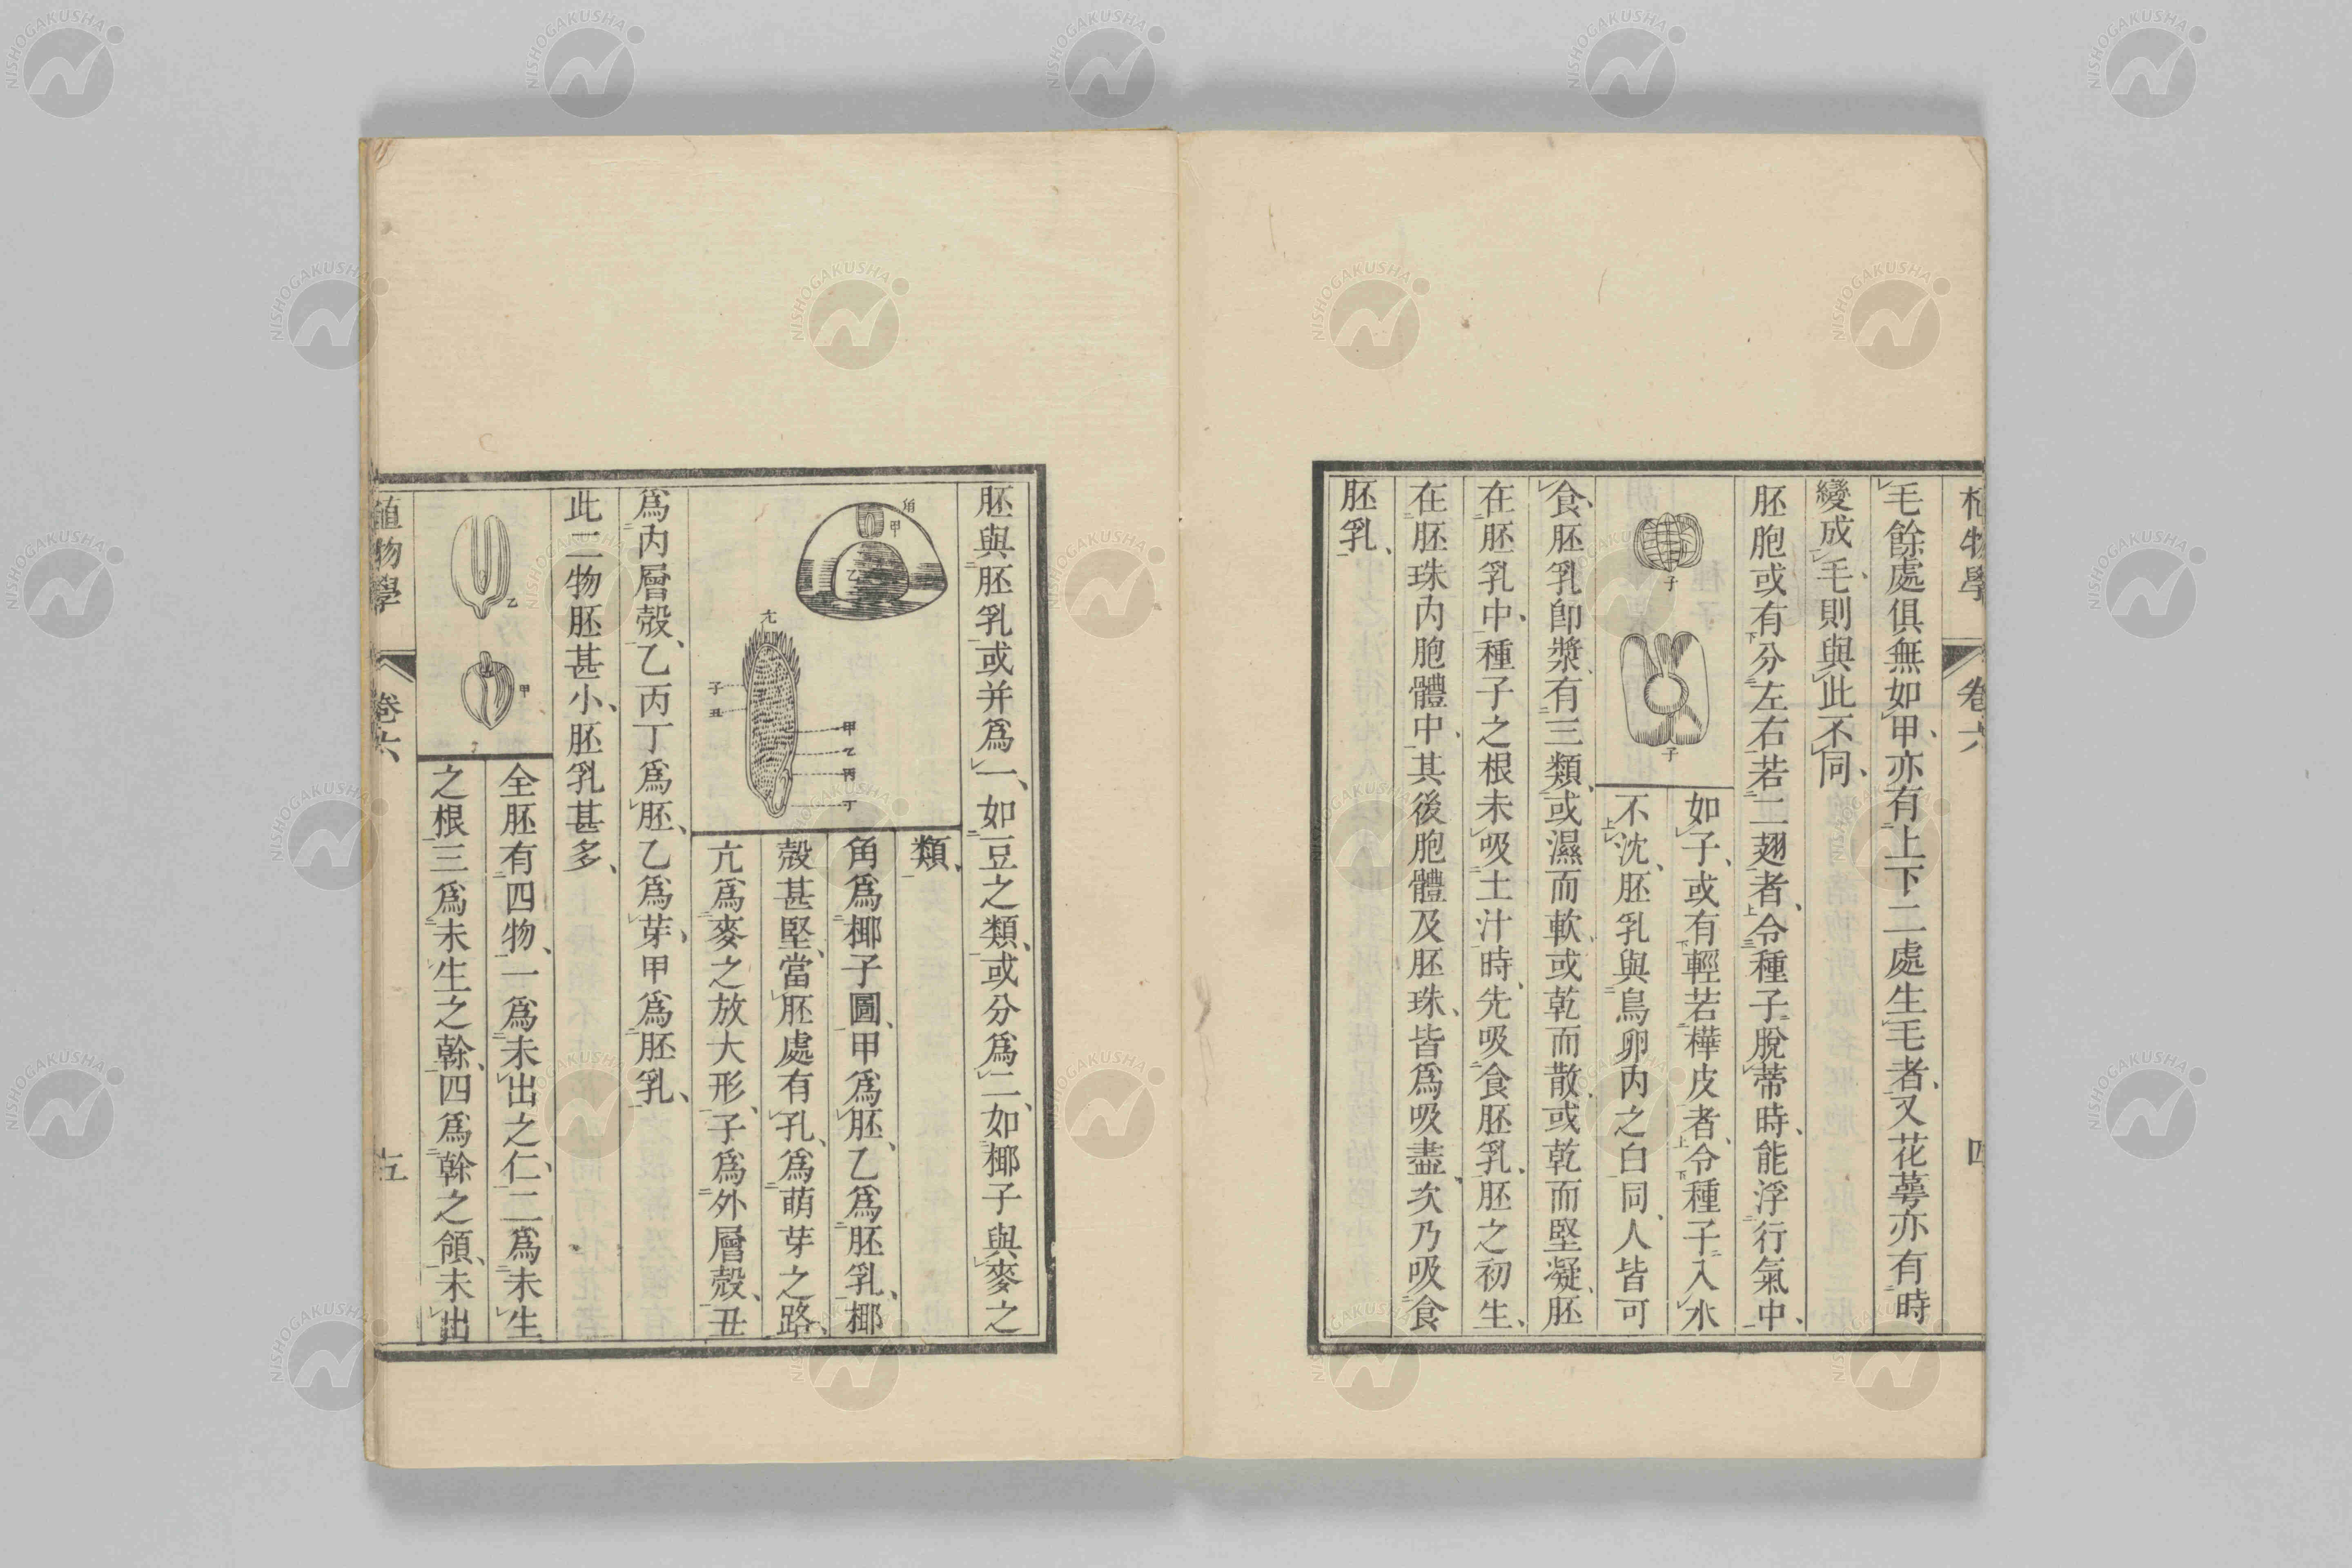 植物學 卷六 四
毛餘處俱無如甲、亦有上下二處生毛者、又花蕚亦有時
變成毛、則與此不同、
胚胞或有分左右若二翅者、令種子脫蒂時、能浮行氣中、
子
子
如子、或有輕若樺皮者、令種子入水
不沈、胚乳與鳥卵內之白同、人皆可
食、胚乳卽漿、有三類、或濕而軟、或乾而散、或乾而堅凝、胚
在胚乳中、種子之根未吸土汁時、先吸食胚乳、胚之初生、
在胚珠內胞體中、其後胞體及胚珠、皆爲吸盡、次乃吸食
胚乳、
胚與胚乳或并爲一、如豆之類、或分爲二、如椰子與麥之
類、
角
甲
乙
亢
子
丑
甲
乙
丙
丁
角爲椰子圖、甲爲胚、乙爲胚乳、椰
殼甚堅、當胚處有孔、爲萌芽之路、
亢爲麥之放大形、子爲外層殼、丑
爲內層殼、乙丙丁爲胚、乙爲芽、甲爲胚乳、
此二物胚甚小、胚乳甚多、
乙
甲
全胚有四物、一爲未出之仁、二爲未生
之根、三爲未生之幹、四爲幹之領、未出
植物學 卷六 五
NISHOGAKUSHA